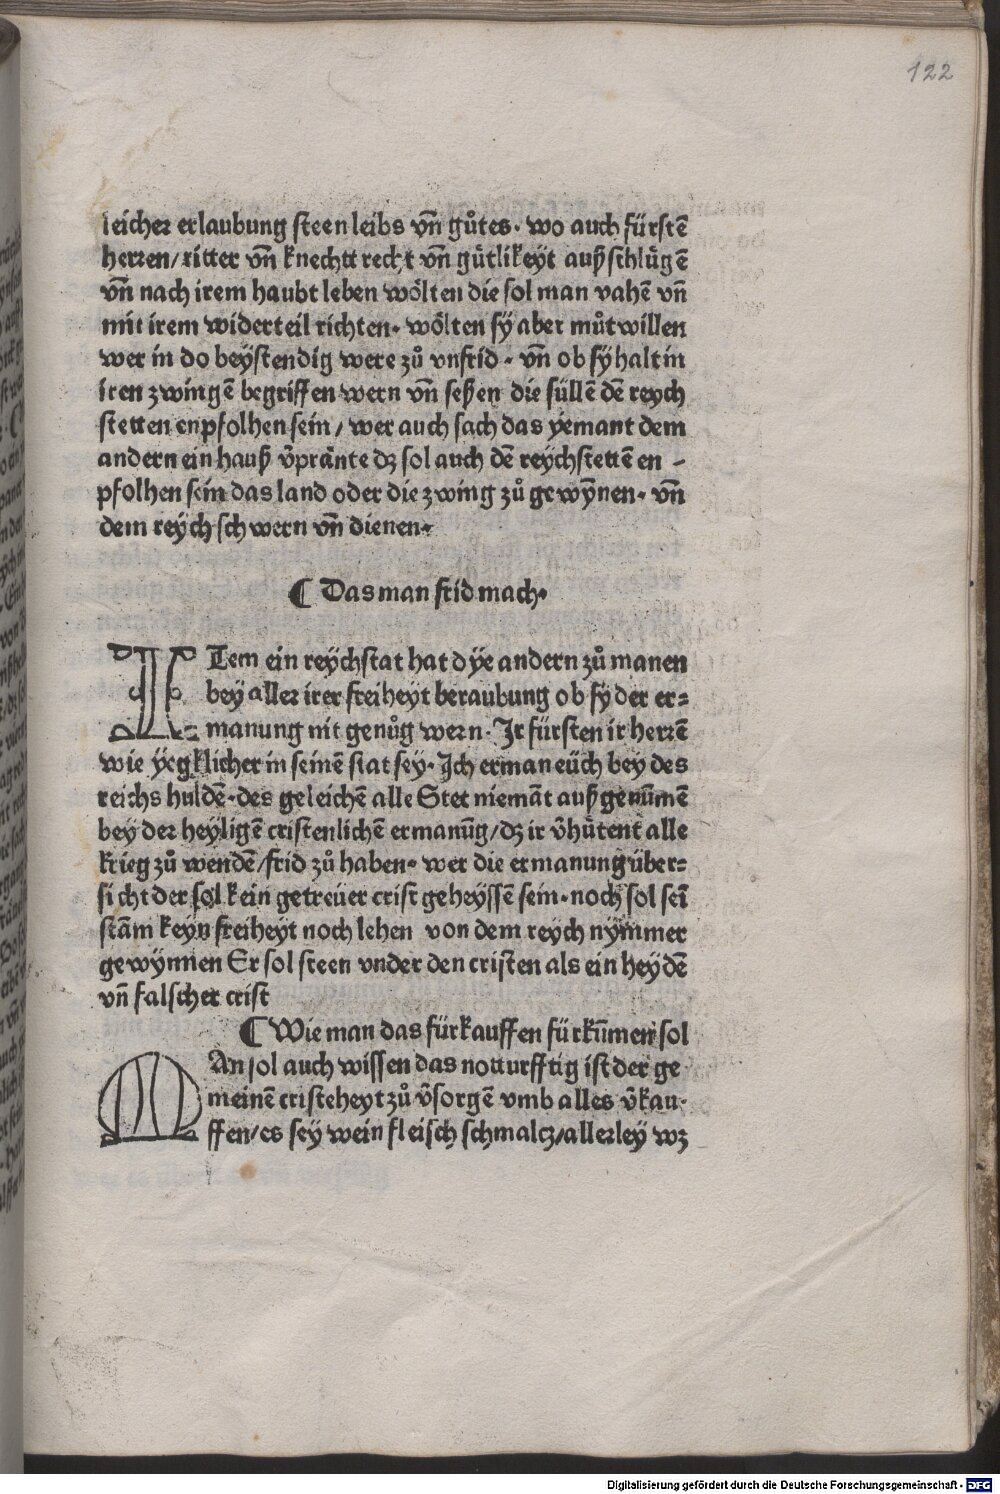 122
leicher erlaubung steen leibs vn̄ gůtes. wo auch fürstē
herren/ ritter vn̄ knechtt recht vn̄ gütlikeyt auß schlügē
vn̄ nach irem haubt leben wölten die sol man vahē vn̄
mit irem widerteil richten. wölten sÿ aber můtwillen
wer in do beÿstendig were zů vnfrid. vn̄ ob sÿ halt in
iren zwingē begriffen wern vn̄ seßen die süllē dē reych
stetten enpfolhen sein/ wer auch sach das yemant dem
andern ein hauß v̄pränte dz sol auch dē reÿchstettē en-
pfolhen sein das land oder die zwing zů gewÿnen. vn̄
dem reÿch schwern vn̄ dienen.
¶ Das man frid mach.
ITem ein reÿchstat hat dÿe andern zů manen
bey aller irer freiheyt beraubung ob sÿ der er=
manung nit genůg wern. Jr fürsten ir herrē
wie ÿegklicher in seinē stat sey. Jch erman eüch bey des
reichs huldē. des geleichē alle Stet niemāt auß genūmē
bey der heyligē cristenlichē ermanūg/ dz ir v̄hütent alle
krieg zů wendē/ frid zů haben. wer die ermanung über=
sicht der sol kein getreüer crist geheyssē sein. noch sol sei
stām keyn freiheyt noch lehen von dem reych nÿmmer
gewÿnnen Er sol steen vnder den cristen als ein heÿdē
vn̄ falscher crist
¶ Wie man das fürkauffen fürkūmen sol
MAn sol auch wissen das notturfftig ist der ge
meinē cristeheyt zů v̄sorgē vmb alles v̄kau-
ffen/ es seÿ wein fleisch schmalcz/ allerley wz
Digitalisierung gefördert durch die Deutsche Forschungsgemeinschaft - DFG